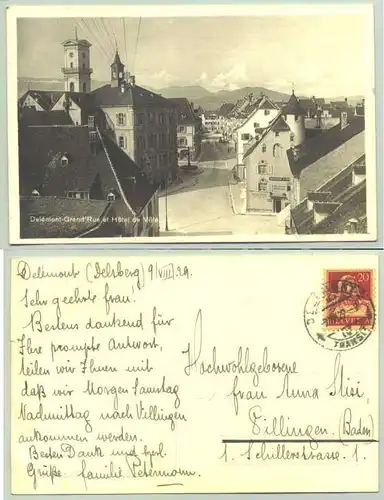 Delémont-Grand'Rue et Hôtel de Ville
Delémont (Delsberg) 9/VIII 29.
Sehr geehrte frau.
Bestens dankend für
Ihre prompte Antwort,
teilen wir Ihnen mit
daß wir Morgen Samstag
Nachmittag nach Villingen
ankommen werden.
Besten Dank und herl.
Grüße. familie Petermann.
20
HELVETIA
TRANSIT
Hochwohlgeborene
frau Anna Misi,
Villingen (Baden)
1. Schillerstrasse 1.